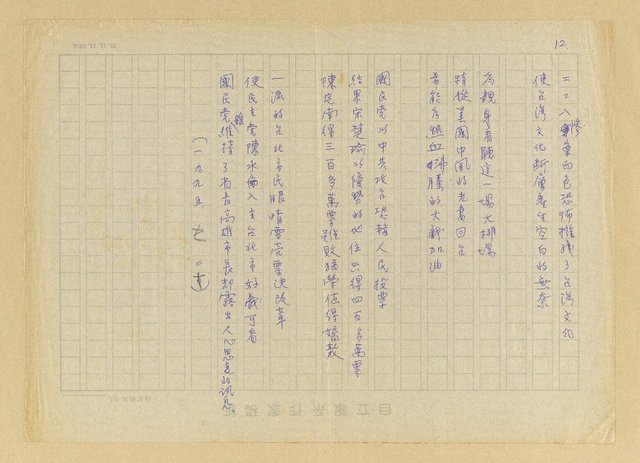 12
二二八事案白色恐怖摧殘了台灣文化
使台灣文化斷層產生空白的無奈
為親身看聽這一場大排場
特從美國中風的老翁回台
為熱血沸騰的大戲加油
國民黨以中共攻台恐嚇人民投票
結果宋楚瑜以優勢的地位只得四百多萬票
陳定南得三百多萬票雖敗猶榮值得嬌教
一流的台北市民眼睛雪亮票決改革
使民主黨陳水扁入主台北市好戲可看
國民黨雖維持了省長高雄市長却露出人心思變的訊息
（一九九五、
自立報系作家稿